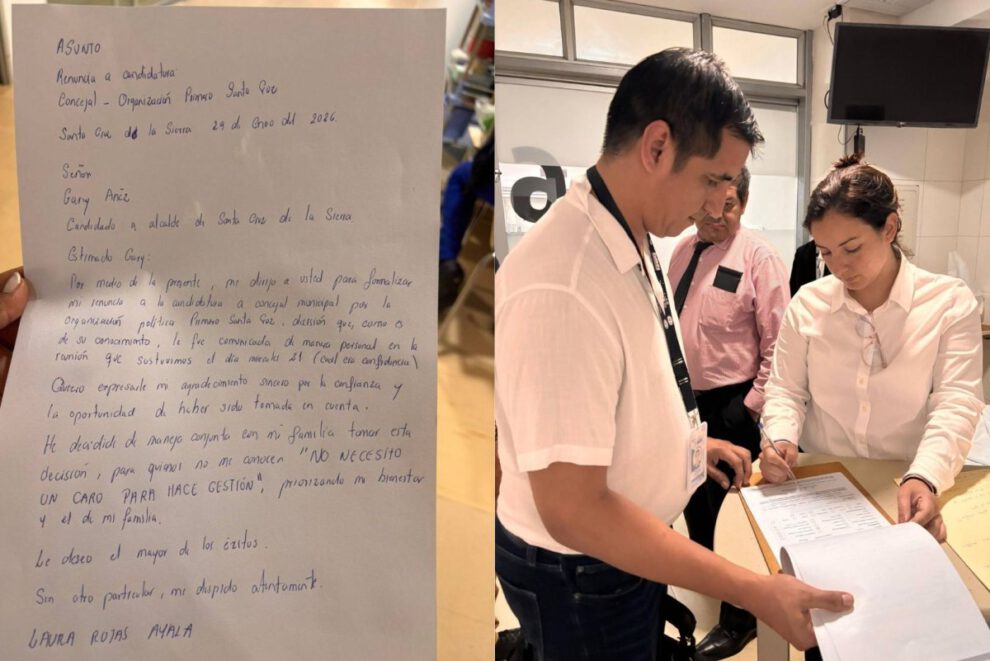 ASUNTO
Renuncia a candidatura:
Concejal - Organización Primero Santa Cruz
Santa Cruz de la Sierra 29 de Enero del 2026.
Señor
Gary Añez
Candidado a alcalde de Santa Cruz de la Sierra
Estimado Gary:
Por medio de la presente, me dirijo a usted para formalizar
mi renuncia a la candidatura a concejal municipal por la
organización política Primero Santa Cruz, decisión que, como es
de su conocimiento, le fue comunicada de manera personal en la
reunión que sostuvimos el día miercoles 21 (cual era confidencial)
Quiero expresarle mi agradecimiento sincero por la confianza y
la oportunidad de haber sido tomada en cuenta.
He decidido de manera conjunta con mi familia tomar esta
decisión, para quienes no me conocen "NO NECESITO
UN CARGO PARA HACE GESTIÓN", priorizando mi bienestar
y el de mi familia.
Le deseo el mayor de los éxitos.
Sin otro particular, me despido atentamente.
LAURA ROJAS AYALA
6